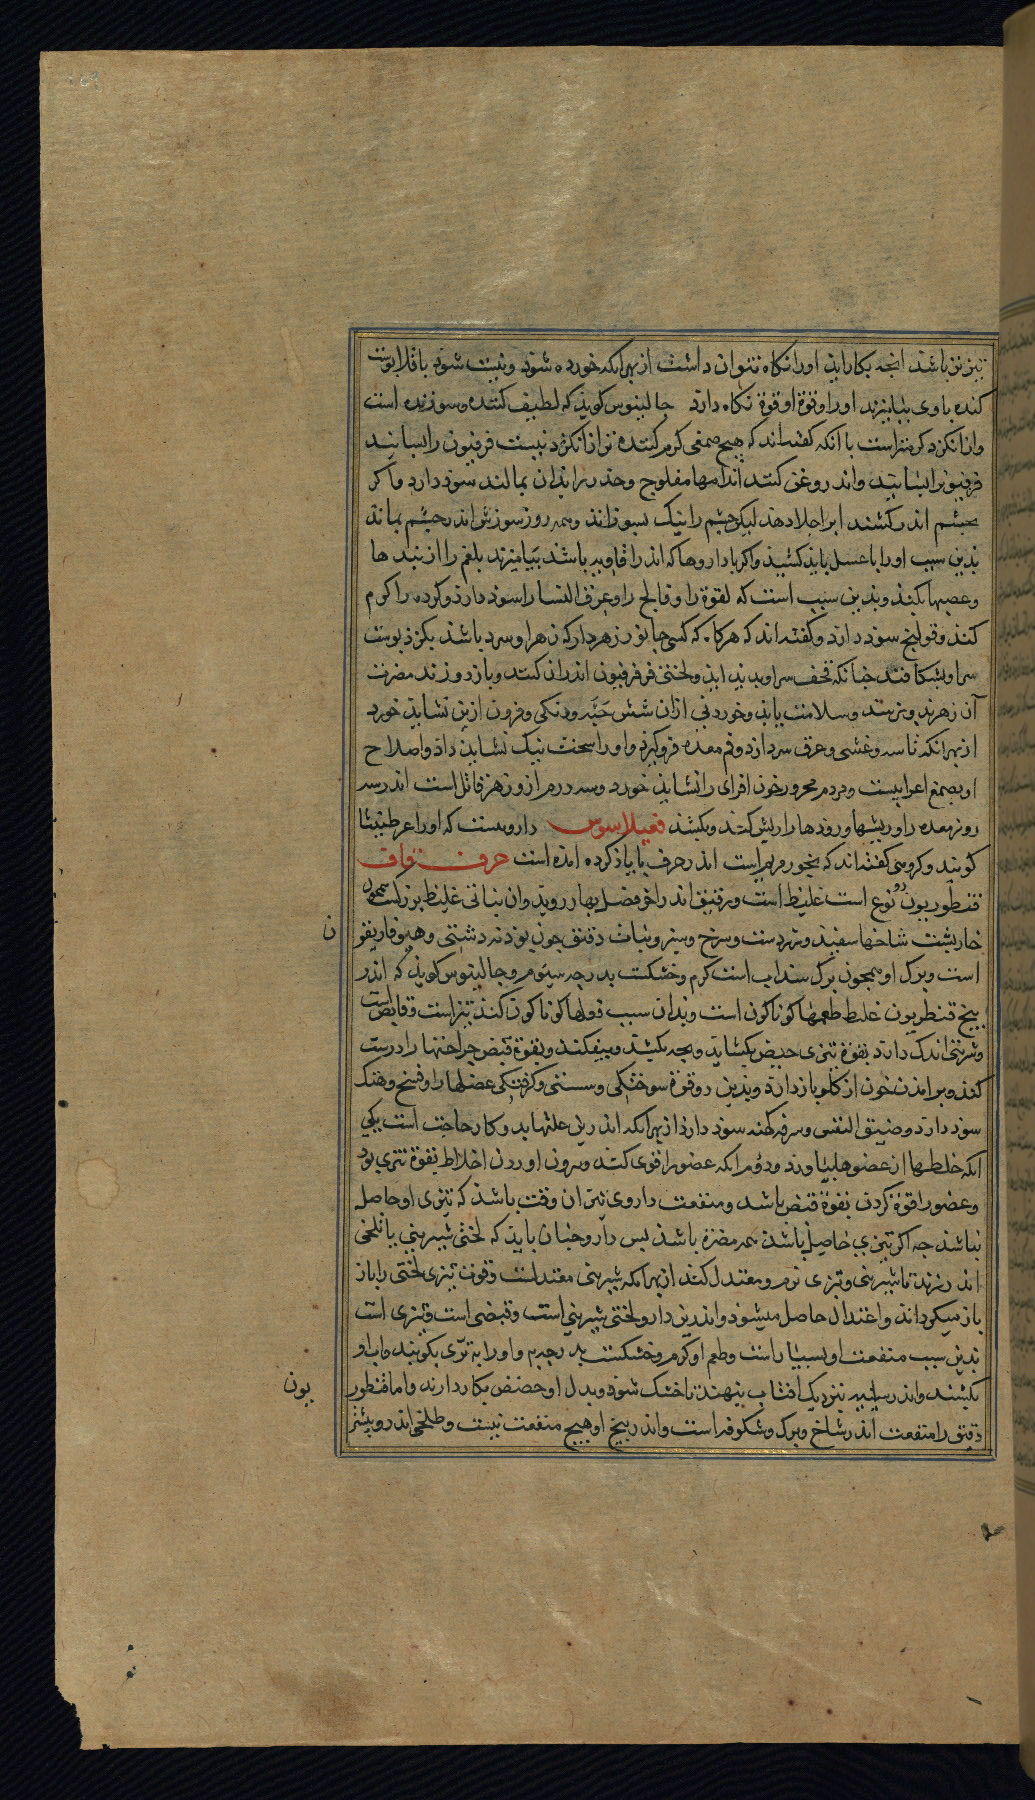 تیزتر باشد انچه بکار اید اورا نکاه نتوان داشت از بهر انکه خورده شود ونیست شود باقلا پوست
کنده باوی بیامیزند اورا وقوة او قوة نکاه دارد جالینوس کوید که لطیف کننده وسوزنده است
وازانکزد کرمتراست با انکه کفته اند که هیچ صمغی کرم کننده تر از انکزد نیست فرفیون را بسایند
فرفیون را بسایند واندر روغن کنند اندامها مفلوج وخدر را بدان بمالند سود دارد واکر
بچشم اندر کشند ابرا جلا دهد لیکن چشم را نیک بسوزاند وهمه روز سوزش اندر چشم بماند
بدین سبب اورا با عسل باید کشید واکر با داروها که اندر افاویه باشد بیامیزند بلغم را از بندها
وعصبها بکشد وبدین سبب است که لقوة را وفالج را وعرق النسا را سود دارد وکرده را کرم
کند وقولنج سود دارد وکفته اند که هرکاه که کسی جانور زهردار که زهر او سرد باشد بکزد پوست
سر او بشکافند چنانکه قحف سر او پدید اید ولختی فرفیون اندران کنند وباز دوزند مضرت
آن زهر بدو نرسد وسلامت یابد وخوردنی ازان شش حبه ودنکی وفزون ازین نشاید خورد
از بهر انکه تاسه وغشی وعرق سرد ارد وفم معده فرو کیرد واورا سخت نیک بشاید داد واصلاح
او بصمغ اعرابیست ومردم محرور خون افزای را نشاید خورد وسه درم ازو زهر قاتل است اندر سه
روز معده را وریشها ورودها را ریش کند وبکشد فعیلاسوس داروییست که اورا عرطنیثا
کویند وکروهی کفته اند که بخور مریم است اندر حرف با یاذ کرده امده است حرف قاف
قنطوریون دو نوع است غلیظ است ورقیق اندر اخر فصل بهار روید وان نباتی غلیظ بزرکست همچون
خارپشت شاخها سفید وزردست وسرخ وسبز ونبات دقیق چون پودنه دشتی وهیوفاریقو
ن
است وبرک او همچون برک سنداب است کرم وخشکست بدرجه سیوم وجالینوس کوید که اندر
بیخ قنطریون غلیظ طعمها کوناکون است وبدان سبب فعلها کوناکون کند تیز است وقابض است
وشیرینی اندک دارد بقوة تیزی حیض بکشاید وبچه بکشد وبیفکند وبقوة قبض جراحتها را درست
کند وبرامدن خون از کلو باز دارد وبدین دو قوة سوختکی وسستی وکرفتکی عضلها را وفسخ وهتک
سود دارد وضیق النفس وسرفه کهنه سود دارد از بهر انکه اندرین علتها بدو کار حاجت است یکی
انکه خلطها از عضوها بیاورد ودوم انکه عضو را قوی کند وبیرون اوردن اخلاط بقوة تیزی بود
وعضو را قوة کردن بقوة قبض باشد ومنفعت داروی تیز ان وقت باشد که تیزی او حاصل
نباشد چه اکر تیزی حاصل باشد همه مضرة باشد پس دارو چنان باید که لختی شیرینی یا تلخی
اندر زند تا شیرینی وتیزی نرم ومعتدل کند از بهر انکه شیرینی معتدلست وقوت تیزی لختی را باز
باز میکرداند واعتدال حاصل میشود واندرین دارو لختی شیرینی است وقبضی است وتیزی است
بدین سبب منفعت او بسیار است وطعم او کرم وخشکست بدرجه یم واورا به تری بکوبند واب او
بکشند واندر سایه نزدیک افتاب بنهند تا خشک شود وبدل او حضض بکار دارند واما قنطور
یون
دقیق را منفعت اندر شاخ وبرک وشکوفه است واندر بیخ او هیچ منفعت نیست وطلخی اندرو بیشتر